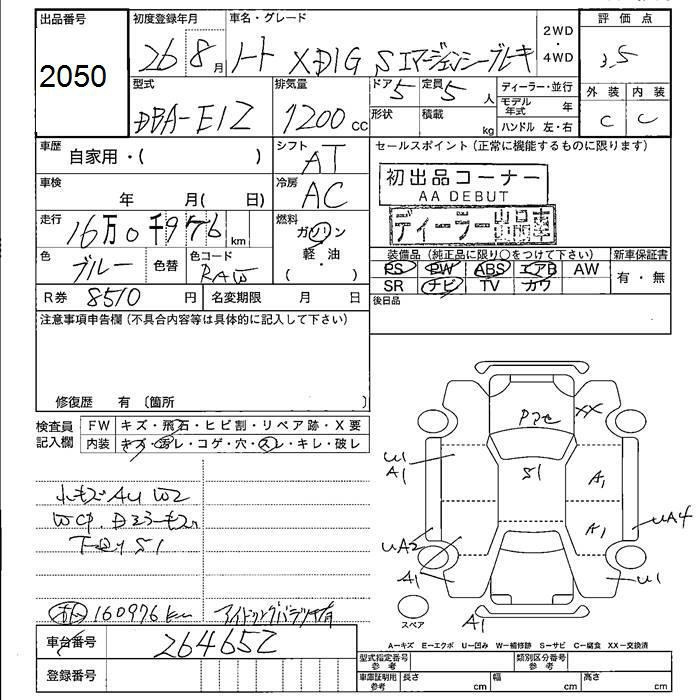 出品番号
2050
初度登録年月
26 8月
車名・グレード
ノート X DIG S エマージェンシーブレーキ
2WD
・
4WD
評価点
3.5
外装 内装
C C
型式
DBA-E12
排気量
1200cc
ドア 5
定員 5人
形状
積載 kg
ディーラー・並行
モデル年式 年
ハンドル 左・右
車歴
自家用・( )
シフト
AT
セールスポイント(正常に機能するものに限ります)
初出品コーナー
AA DEBUT
ディーラー出品車
車検
年 月( 日)
冷房
AC
走行
16万0千976km
燃料
ガソリン
軽・油
( )
色
ブルー
色替
色コード
RAW
装備品(純正品に限り○をつけて下さい)
PS PW ABS エアB AW
SR ナビ TV カワ
新車保証書
有・無
R券 8510円
名変期限 月 日
後日品
注意事項申告欄(不具合内容等は具体的に記入して下さい)
修復歴 有 〔箇所 〕
検査員記入欄
FW キズ・飛石・ヒビ割・リペア跡・X要
内装 キズ・汚レ・コゲ・穴・スレ・キレ・破レ
小キズ AU W2
下回り S1
160976km アイドリングバラツキ有
車台番号 264652
登録番号
XX
S1
U1
A1
A1
A1
UA4
UA2
A1
U1
A1
スペア
A―キズ E―エクボ U―凹み W―補修跡 S―サビ C―腐食 XX―交換済
型式指定番号参考
類別区分番号参考
車庫証明用参考
長さ cm
幅 cm
高さ cm